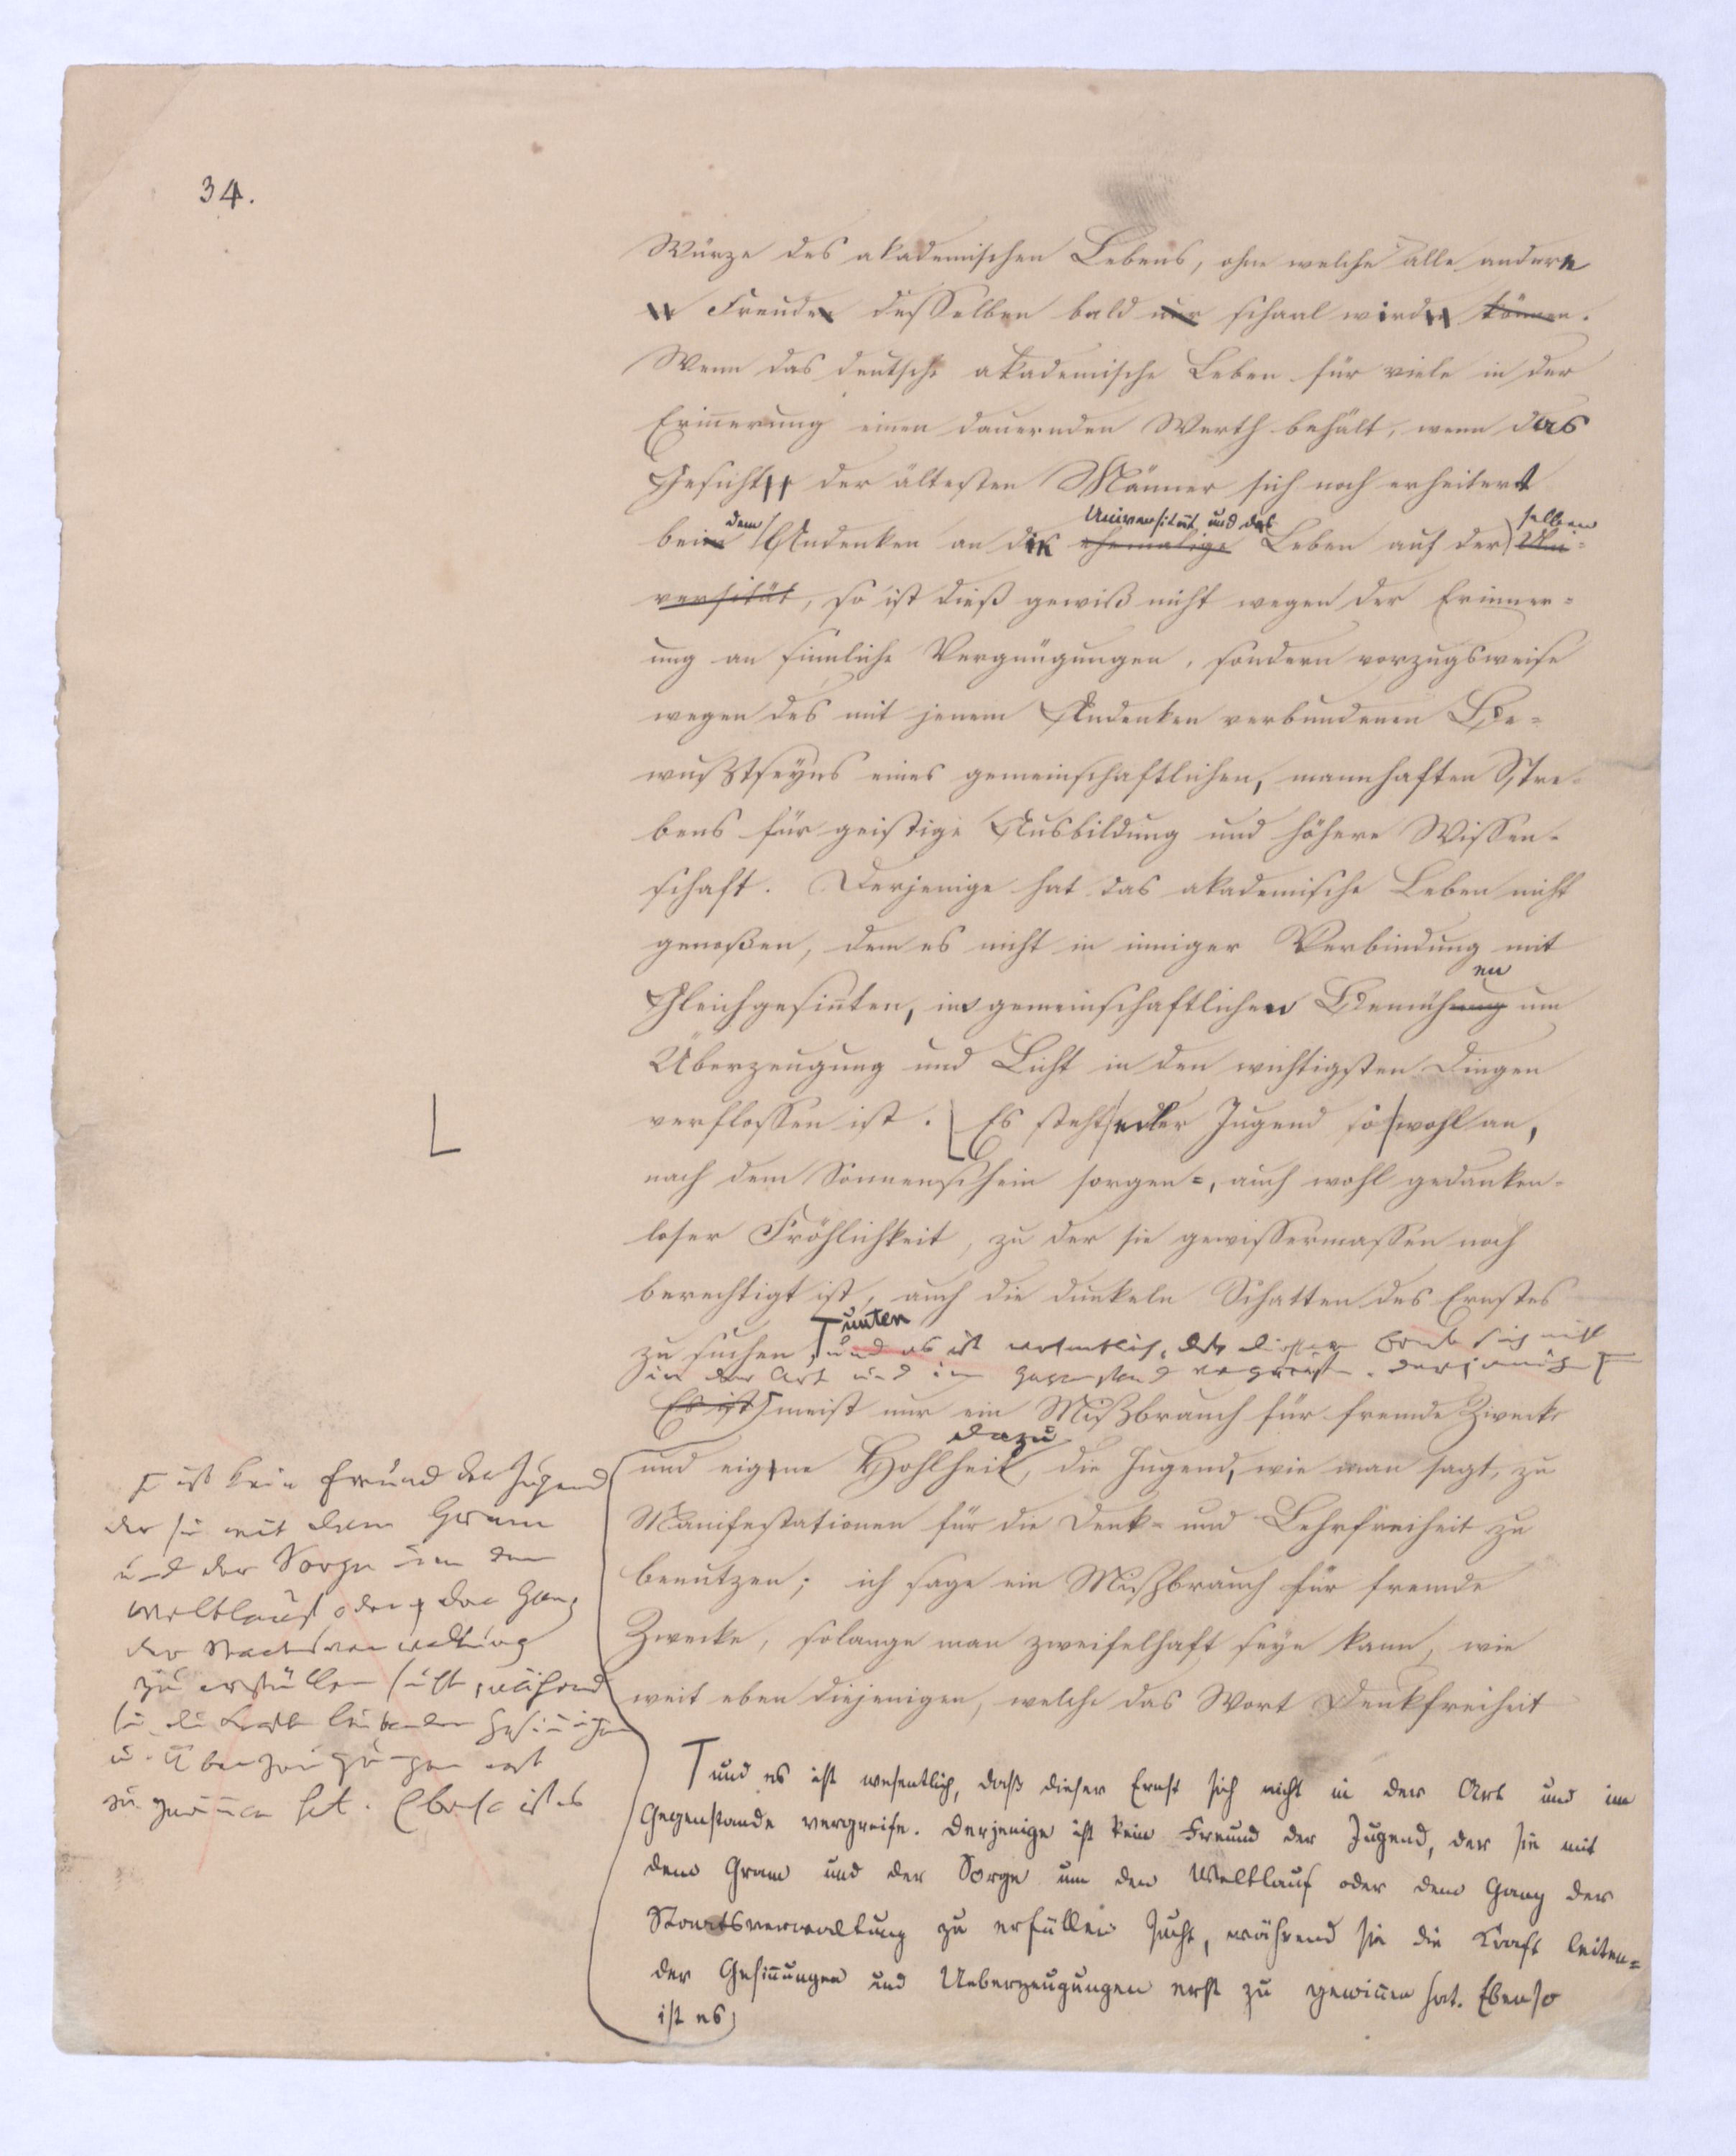 34.
Würze des akademischen Lebens, ohne welche alle andere
Freude desselben bald nur schaal wird können.
Wenn das deutsche akademische Leben für viele in der
Erinnerung einen dauernden Werth behält, wenn das
Gesicht der ältesten Männer sich noch erheitert
dem Universität und das selben
beim Andenken an die ehemalige Leben auf der Uni-
versität, so ist dieß gewiß nicht wegen der Erinner-
ung an sinnliche Vergnügungen, sondern vorzugsweise
wegen des mit jenem Andenken verbundenen Be-
wußtseyns eines gemeinschaftlichen, mannhaften Stre-
bens für geistige Ausbildung und höhere Wissen-
schaft. Derjenige hat das akademische Leben nicht
genoßen, dem es nicht in inniger Verbindung mit
en
Gleichgesinnten, im gemeinschaftlichen Bemühung um
Überzeugung und Licht in den wichtigsten Dingen
verflossen ist. Es steht edler Jugend so wohl an,
nach dem Sonnenschein sorgen-, auch wohl gedanken-
loser Fröhlichkeit, zu der sie gewissermassen noch
berechtigt ist, auch die dunkeln Schatten des Ernstes
unten
zu suchen, und es ist wesentlich, daß dieser Ernst sich nicht
in der Art und im Gegenstand vergreife. derjenige
Es ist meist nur ein Mißbrauch für fremde Zwecke
dazu
und eigne Hohlheit, die Jugend, wie man sagt, zu
Manifestationen für die Denk- und Lehrfreiheit zu
benutzen; ich sage ein Mißbrauch für fremde
Zwecke, solange man zweifelhaft seyn kann, wie
weit eben diejenigen, welche das Wort Denkfreiheit
ist kein Freund der Jugend
der sie mit dem Gram
und der Sorge um den
Weltlauf oder den Gang
der Staatsverwaltung
zu erfüllen sucht, während
sie die Kraft leitender Gesinnungen
u. Überzeugungen erst
zu gewinnen hat. Ebenso ist es
und es ist wesentlich, daß dieser Ernst sich nicht in der Art und im
Gegenstande vergreife. Derjenige ist kein Freund der Jugend, der sie mit
dem Gram und der Sorge um den Weltlauf oder dem Gang der
Staatsverwaltung zu erfüllen sucht, während sie die Kraft leiten-
der Gesinnungen und Ueberzeugungen erst zu gewinnen hat. Ebenso
ist es